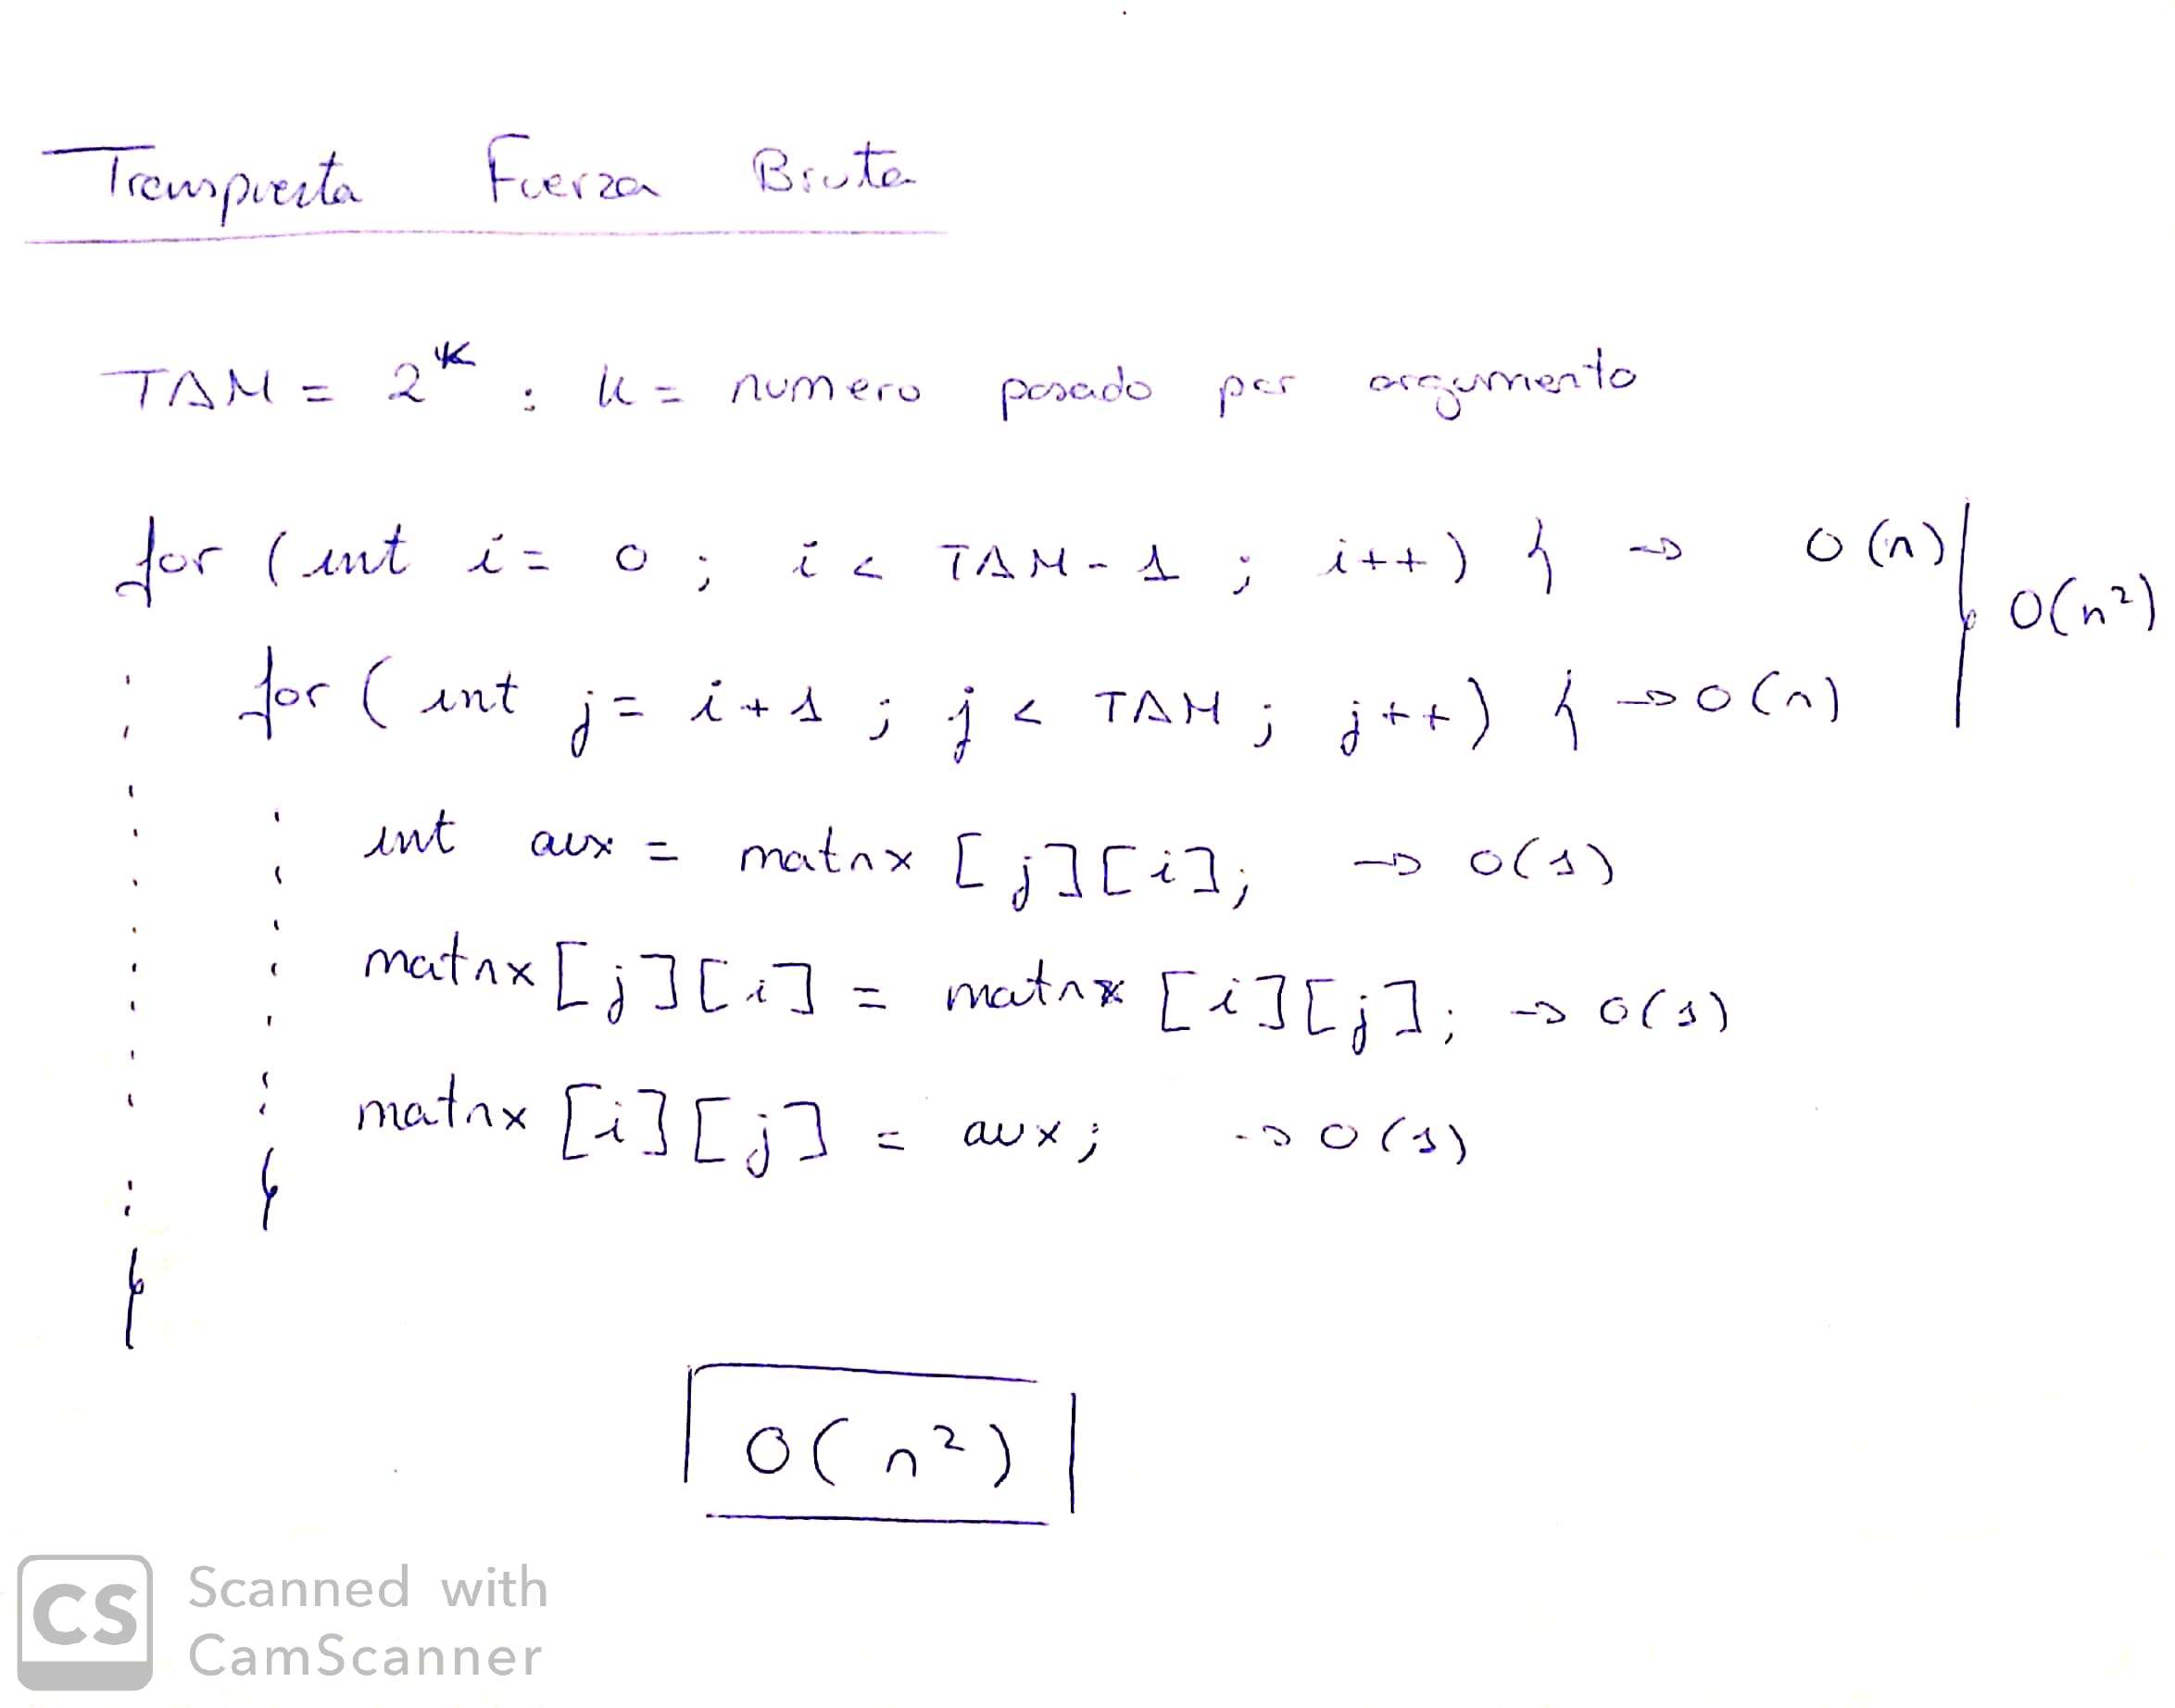 Transpuesta Fuerza Bruta
TAM = 2^K : K = numero pasado por argumento
for (int i = 0 ; i < TAM - 1 ; i++) { → O(n)
O(n²)
for ( int j = i + 1 ; j < TAM ; j++) { → O(n)
int aux = matrix [j][i]; → O(1)
matrix [j][i] = matrix [i][j]; → O(1)
matrix [i][j] = aux; → O(1)
}
}
O(n²)
CS Scanned with
CamScanner